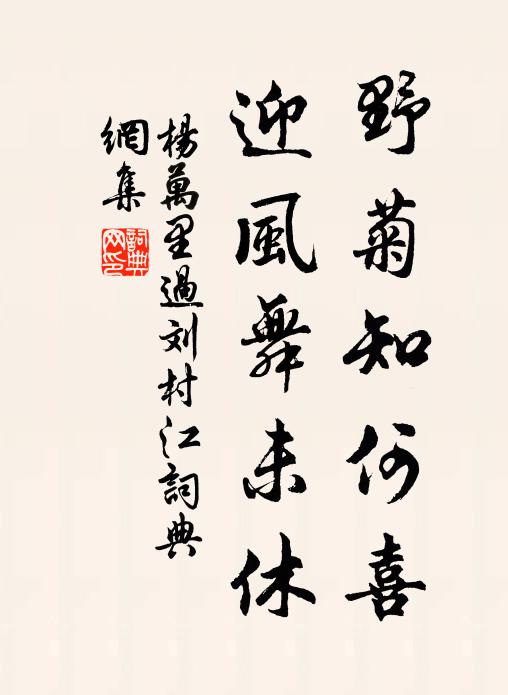 野菊知何喜
迎風舞未休
楊萬里過刘村江詞典
網集
詞典
网印